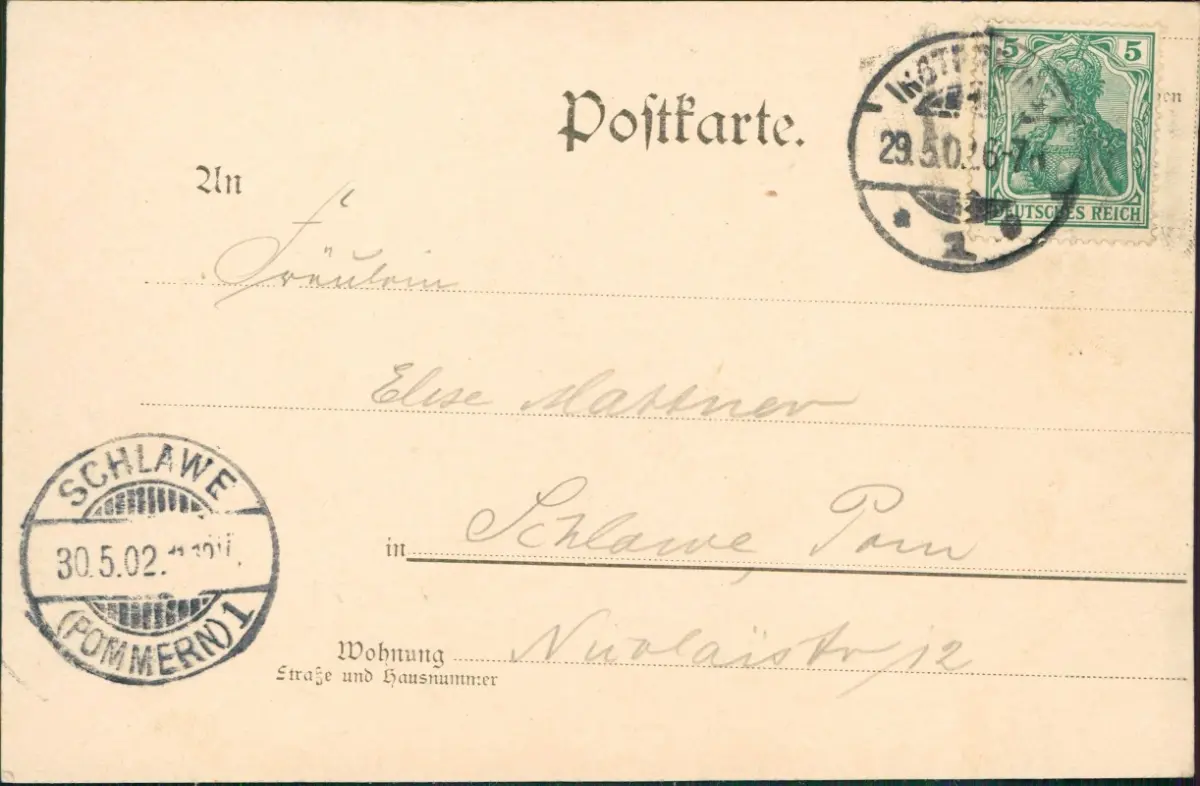 Postkarte.
5 5
DEUTSCHES REICH
29.5.02 6-7N
1
An
Fräulein
Elise Mattner
in Schlawe, Pom
Wohnung Nicolaistr 12
Straße und Hausnummer
SCHLAWE
30.5.02.
(POMMERN) 1